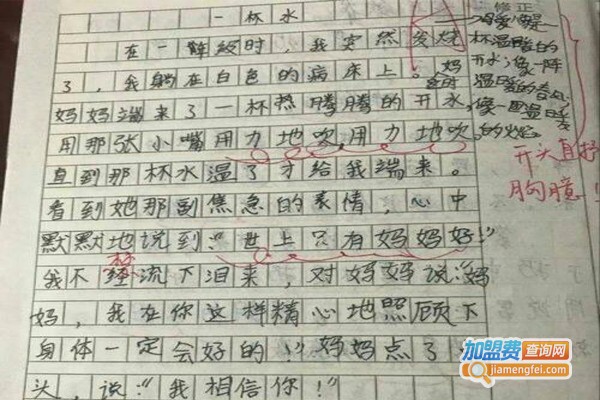 一杯水
修正
在一年级时，我突然发烧
了，我躺在白色的病床上。妈
妈妈端来了一杯热腾腾的开水，
用那张小嘴用力地吹，用力地吹。
直到那杯水温了才给我端来。
看到她那副焦急的表情，心中
默默地说到：“世上只有妈妈好！”
我不禁流下泪来，对妈妈说：“妈
妈，我在你这样精心地照顾下
身体一定会好的！”妈妈点了
头，说：“我相信你！”
杯温暖的
开水；像一阵
温暖的春风，
像一团温暖
的火焰。
开头直抒
胸臆！
加盟费查询网
jiamengfei.com